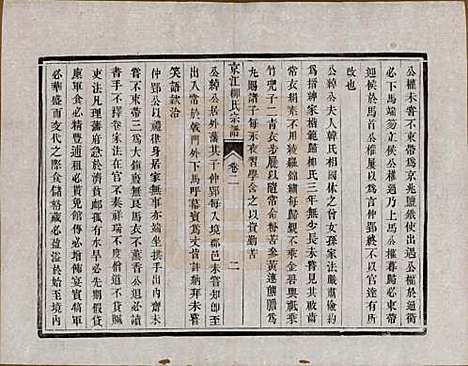 公權未嘗不束帶爲京兆鹽鐵使出遇公綽於通衢
必下馬端笏立候公綽過乃上馬公權暮歸必束帶
迎候於馬首公權屢以爲言仲郢終不以官達有所
改也
公綽夫人韓氏相國休之曾女孫家法嚴肅儉約
爲搢紳家楷範歸柳氏三年無少長未嘗見其啟齒
常衣絹素不用綾羅錦繡每歸覲不乘金碧輿祇乘
竹兜子二青衣步屣以隨常命粉苦參黃連熊膽爲
丸賜諸子每永夜習學含之以資勤苦
京江柳氏宗譜 卷二 二
公綽居外藩其子仲郢每入境郡邑未嘗知卽至
出入常於戟門外下馬呼幕賓爲丈皆許納拜未嘗
笑語款洽
仲郢以禮律身居家無事亦端坐拱手出內齋未
嘗不束帶三爲大鎮廄無良馬衣不薰香公退必讀
書手不釋卷家法在官不奏祥瑞不度僧道不貸贓
吏法凡理藩府急於濟貧卹孤有水旱必先期假貸
廩軍食必精豐逋租必貰免館傳必增飾宴賓犒軍
必華盛而交代之際食儲帑藏必盈溢於始至境內